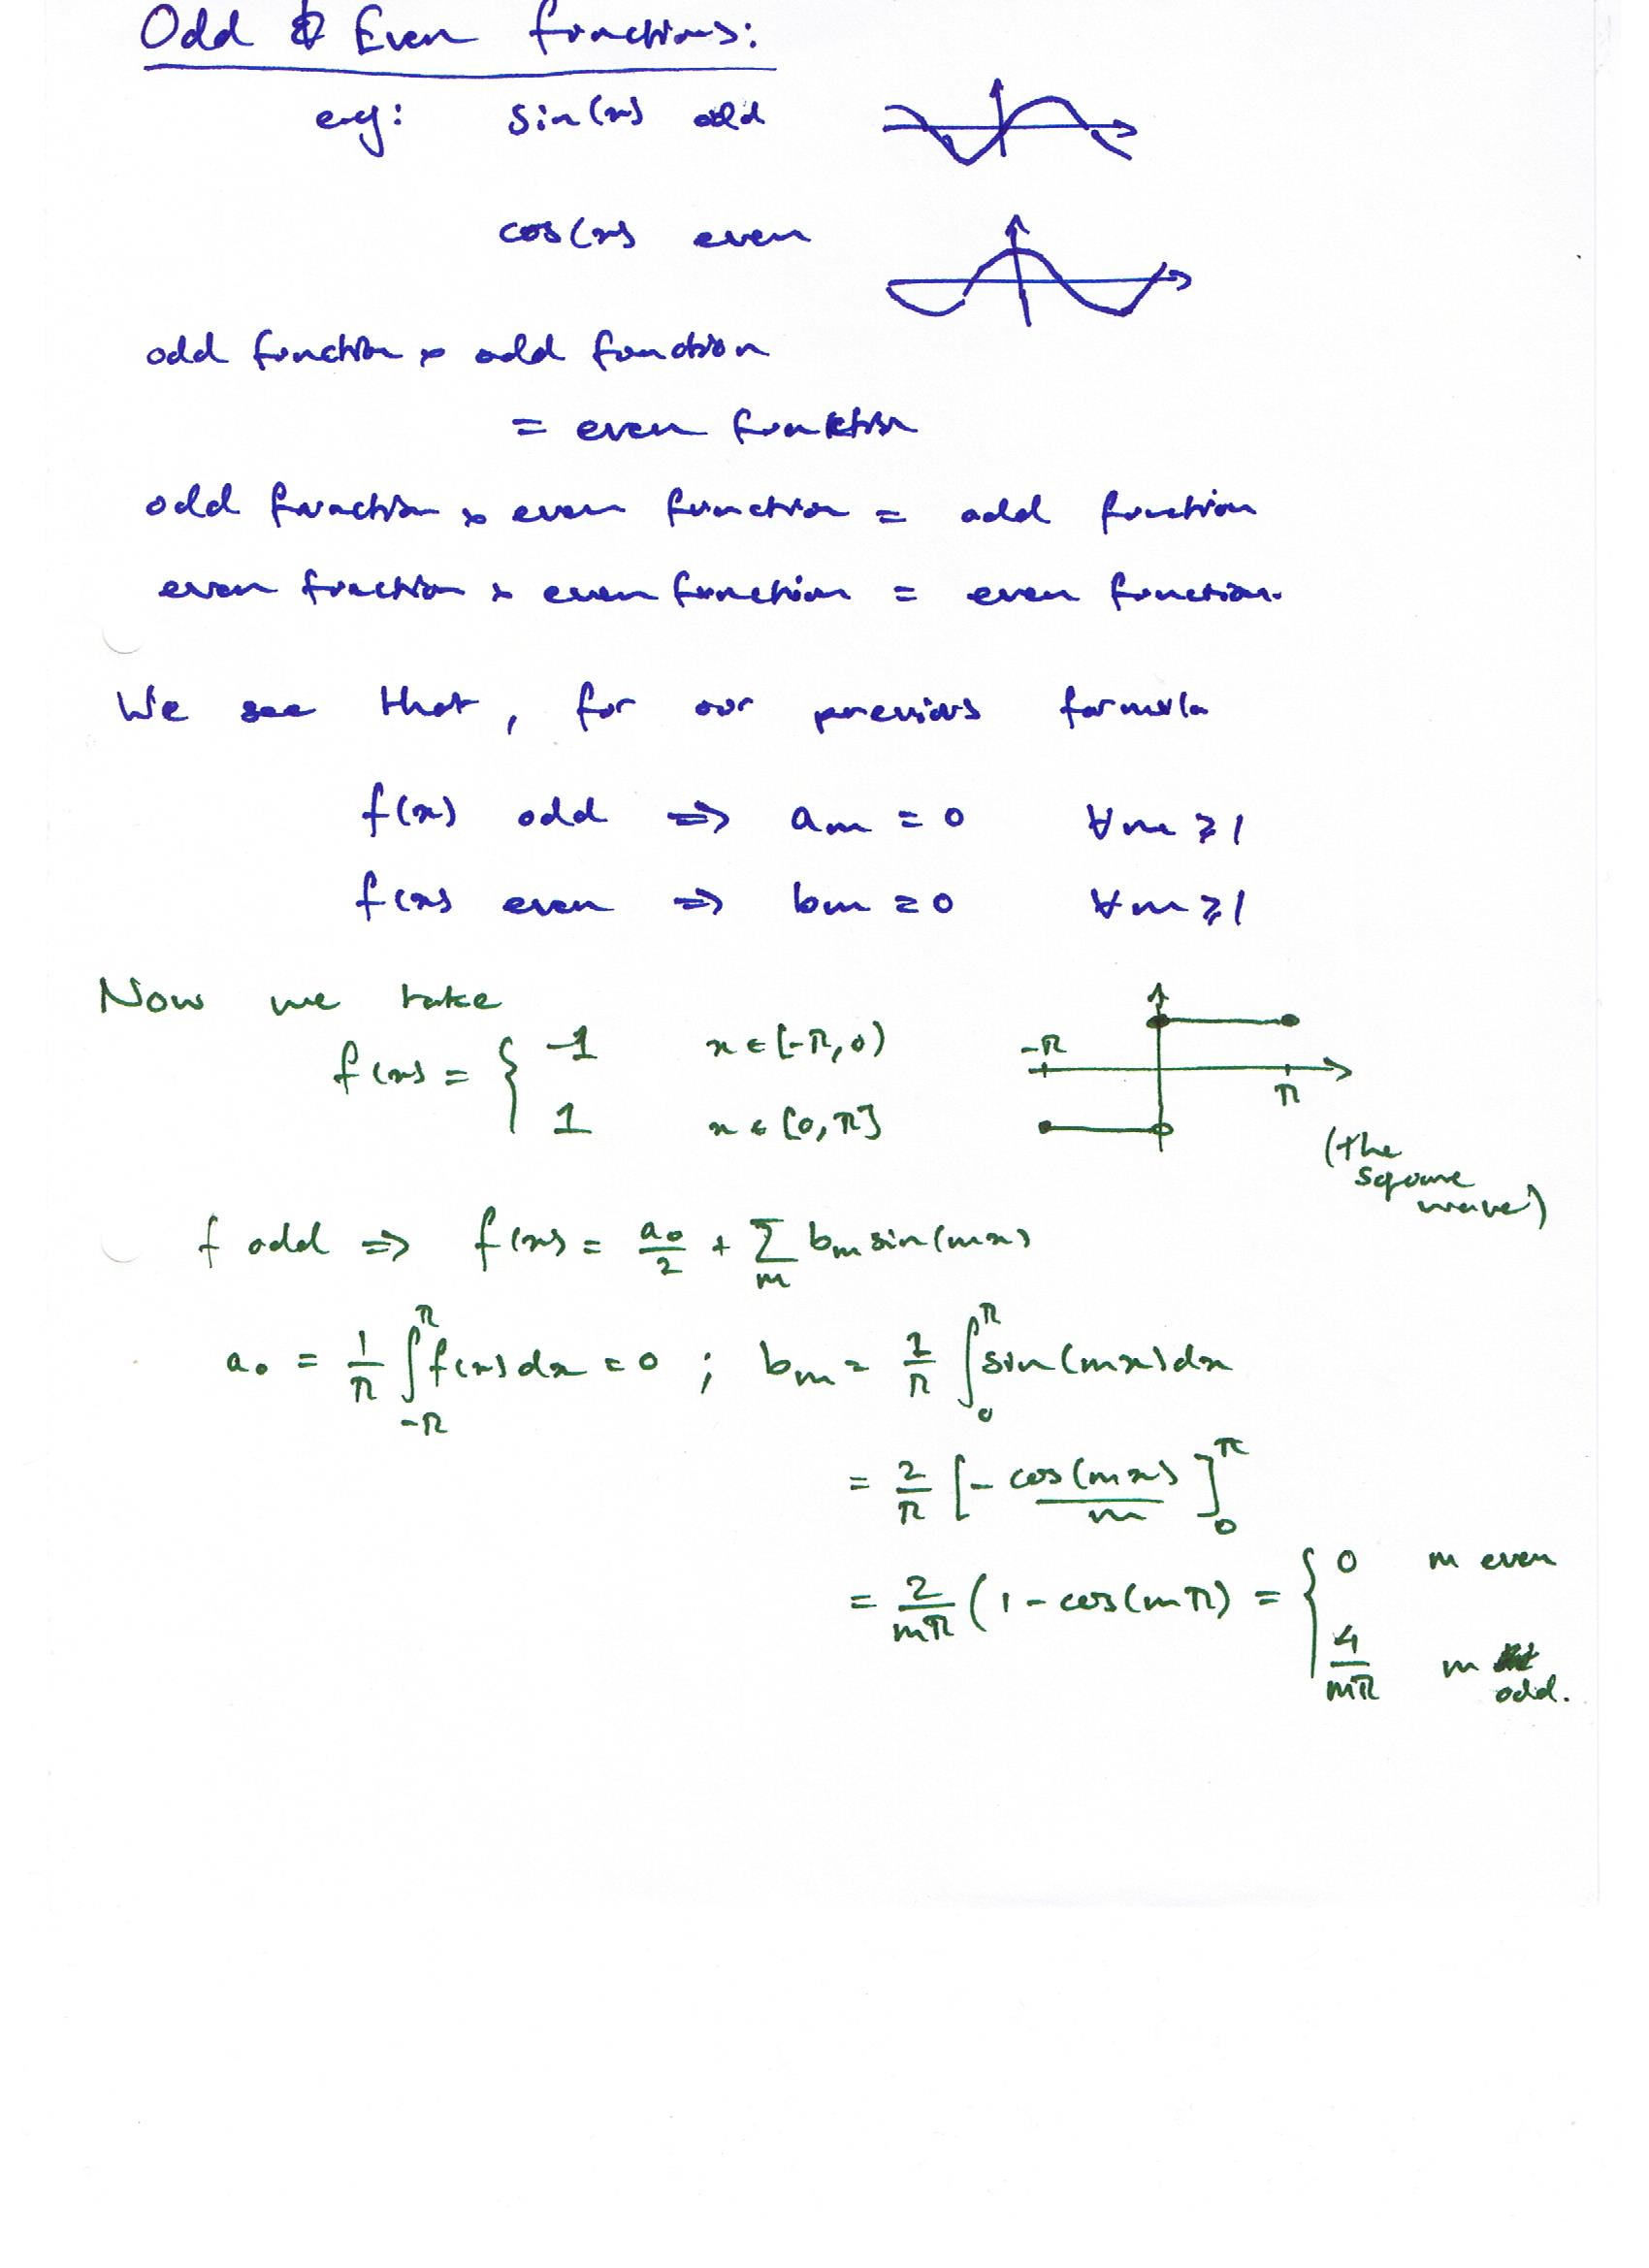 Odd & Even functions:
e.g: sin(x) odd
cos(x) even
odd function × odd function
= even function
odd function × even function = odd function
even function × even function = even function.
We see that, for our previous formula
f(x) odd ⇒ am = 0 ∀m ≥ 1
f(x) even ⇒ bm = 0 ∀m ≥ 1
Now we take
f(x) = { -1 x ∈ [-π, 0)
1 x ∈ [0, π]
-π
π
(the square wave)
f odd ⇒ f(x) = a₀/2 + Σ_m b_m sin(mx)
a₀ = 1/π ∫_{-π}^{π} f(x) dx = 0 ; b_m = 2/π ∫_0^π sin(mx) dx
= 2/π [- cos(mx)/m]_0^π
= 2/mπ (1 - cos(mπ) = { 0 m even
4/mπ m odd.